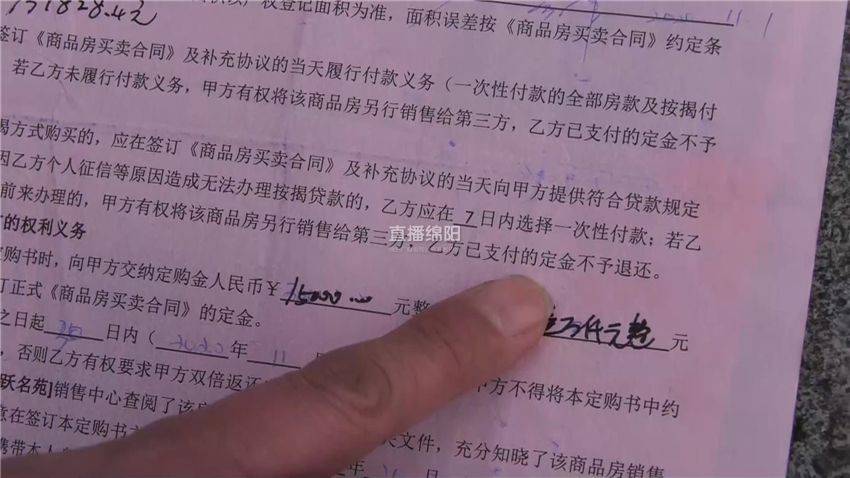 权登记面积为准，面积误差按《商品房买卖合同》约定条
签订《商品房买卖合同》及补充协议的当天履行付款义务（一次性付款的全部房款及按揭付
若乙方未履行付款义务，甲方有权将该商品房另行销售给第三方，乙方已支付的定金不予
揭方式购买的，应在签订《商品房买卖合同》及补充协议的当天向甲方提供符合贷款规定
因乙方个人征信等原因造成无法办理按揭贷款的，乙方应在7日内选择一次性付款；若乙
前来办理的，甲方有权将该商品房另行销售给第三方，乙方已支付的定金不予退还。
直播绵阳
的权利义务
购书时，向甲方交纳定购金人民币￥15000.00元整
元
订正式《商品房买卖合同》的定金。
之日起 日内（2020年11
，否则乙方有权要求甲方双倍返还
甲方不得将本定购书中约
跃名苑]销售中心查阅了该
文件，充分知晓了该商品房销售
意在签订本定购书
携带本人
年 日